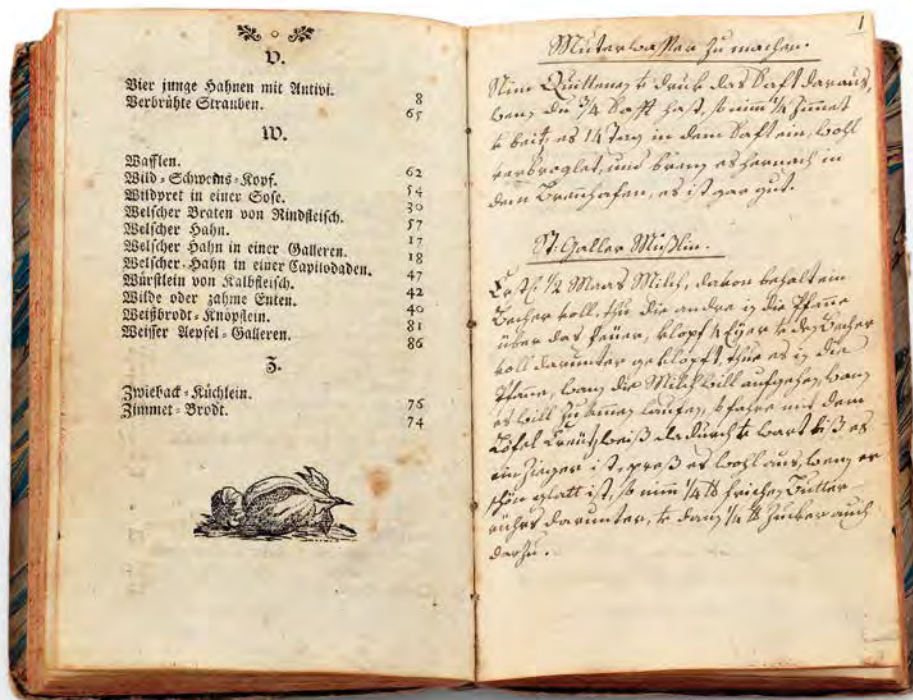 V.
Vier junge Hahnen mit Antivi. 8
Verbrühte Strauben. 65
W.
Wafflen. 62
Wild=Schweins=Kopf. 54
Wildpret in einer Sose. 30
Welscher Braten von Rindfleisch. 57
Welscher Hahn. 17
Welscher Hahn in einer Galleren. 18
Welscher=Hahn in einer Capilodaden. 47
Würstlein von Kalbfleisch. 42
Wilde oder zahme Enten. 40
Weißbrodt=Knöpflein. 81
Weisser Aepfel=Galleren. 86
Z.
Zwieback=Küchlein. 76
Zimmet=Brodt. 74
1
Muterwasser zu machen.
Nim Quitteney & druk das Saft daraus,
wen du 3/4 Safft hast, so nimm 1/4 Zimmet
& beitz es 14 Tag in dem Saft ein, wohl
und breny es hernach in
dem Brennhafen, es ist gar gut.
St: Galler Müßlin.
1/2 Maas Milch, davon behalt ein
Becher voll, thu die andre in die Pfanne
über das feüer, klopf 4 Eÿer & den Becher
voll darunter geklopft, thue es in die
Pfane, wann die Milch will aufgehen, wann
es will zusamen laufen, so fahre mit dem
Löfel Creutzweiß dadurch & wart biß es
ein Zieger ist, preß es wohl aus, wenn er
schön glatt ist, so nimm 1/4 lb frischen Butter
rührs darunter, & dann 1/4 lb Zucker auch
darzu.